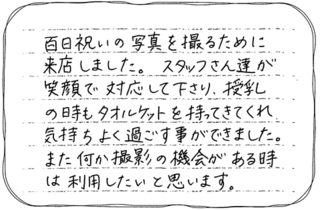 百日祝いの写真を撮るために
来店しました。スタッフさん達が
笑顔で対応して下さり、授乳
の時もタオルケットを持ってきてくれ
気持ちよく過ごす事ができました。
また何か撮影の機会がある時
は利用したいと思います。